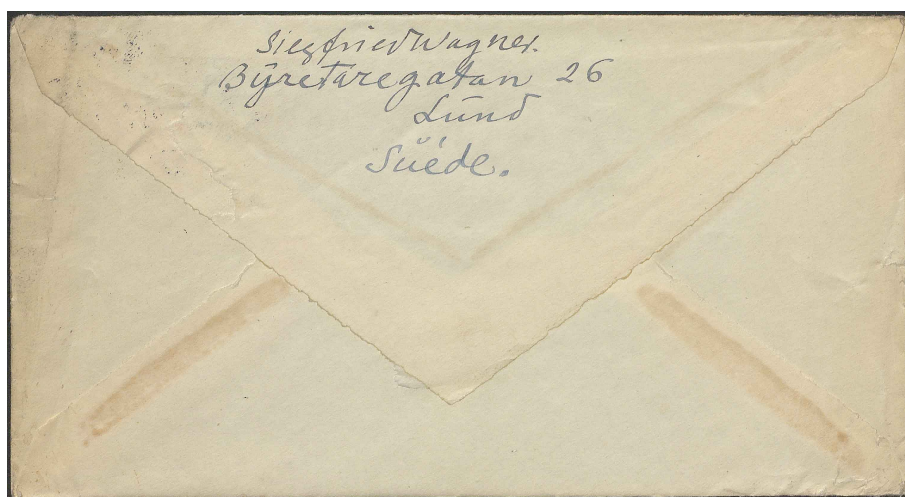 Siegfried Wagner.
Byretaregatan 26
Lund
Suéde.